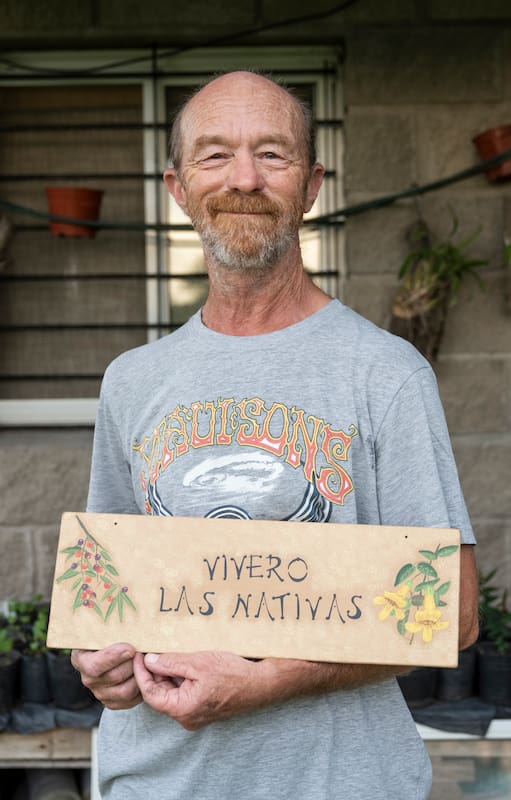 MAUI & SONS
VIVERO
LAS NATIVAS